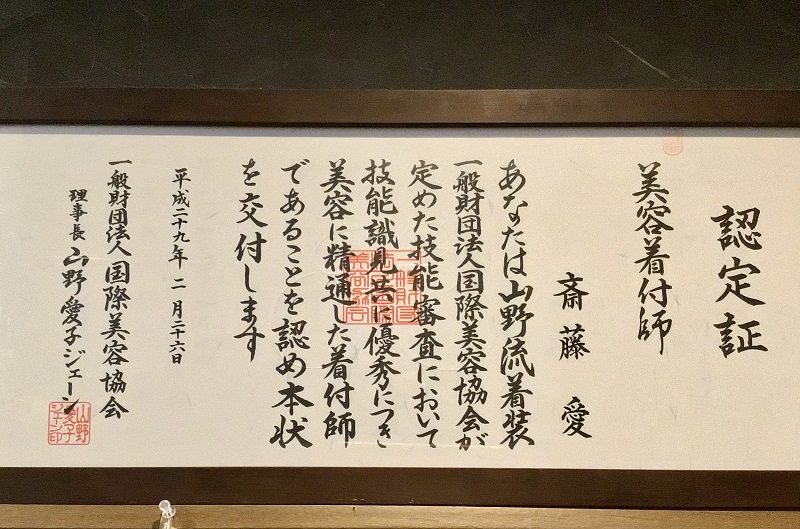 認定証
美容着付師
斎藤愛
あなたは山野流着装
一般財団法人国際美容協会が
定めた技能審査において
技能識見共に優秀につき
美容に精通した着付師
であることを認め本状
を交付します
平成二十九年二月二十六日
一般財団法人国際美容協会
理事長山野愛子ジェーン
山野
愛子
ジェーン印